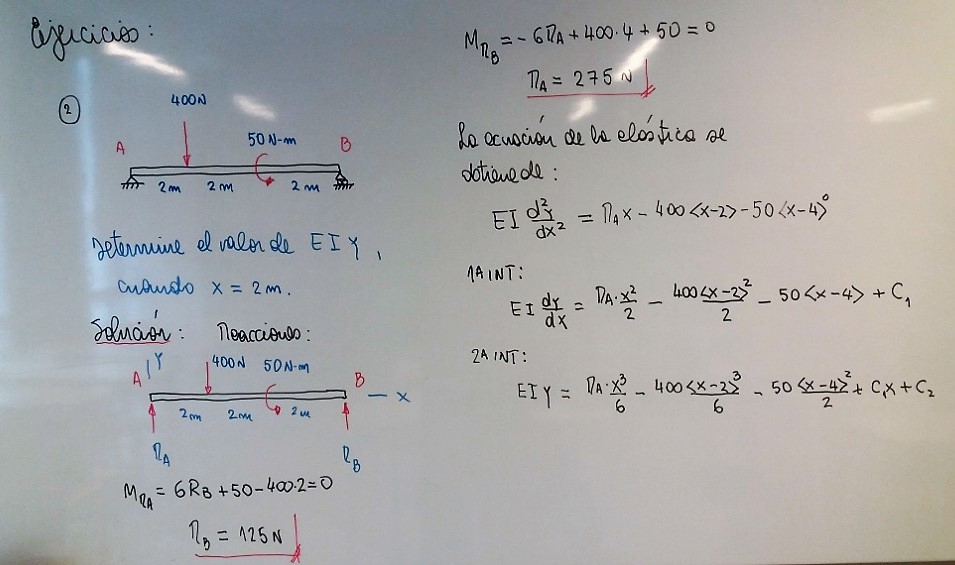 Ejercicios:
②
400N
A
50 N-m
B
2m 2m 2m
Determine el valor de EIY,
cuando x = 2m.
Solución: Reacciones:
Y
400N 50N-m
A
B
x
2m 2m 2m
R_A
R_B
M_{R_A} = 6R_B + 50 - 400·2 = 0
R_B = 125N
M_{R_B} = -6R_A + 400·4 + 50 = 0
R_A = 275 N
La ecuación de la elástica se
obtiene de:
EI d²y/dx² = R_A x - 400<x-2> - 50<x-4>⁰
1A INT:
EI dy/dx = R_A·x²/2 - 400<x-2>²/2 - 50<x-4> + C₁
2A INT:
EIY = R_A·x³/6 - 400<x-2>³/6 - 50<x-4>²/2 + C₁x + C₂